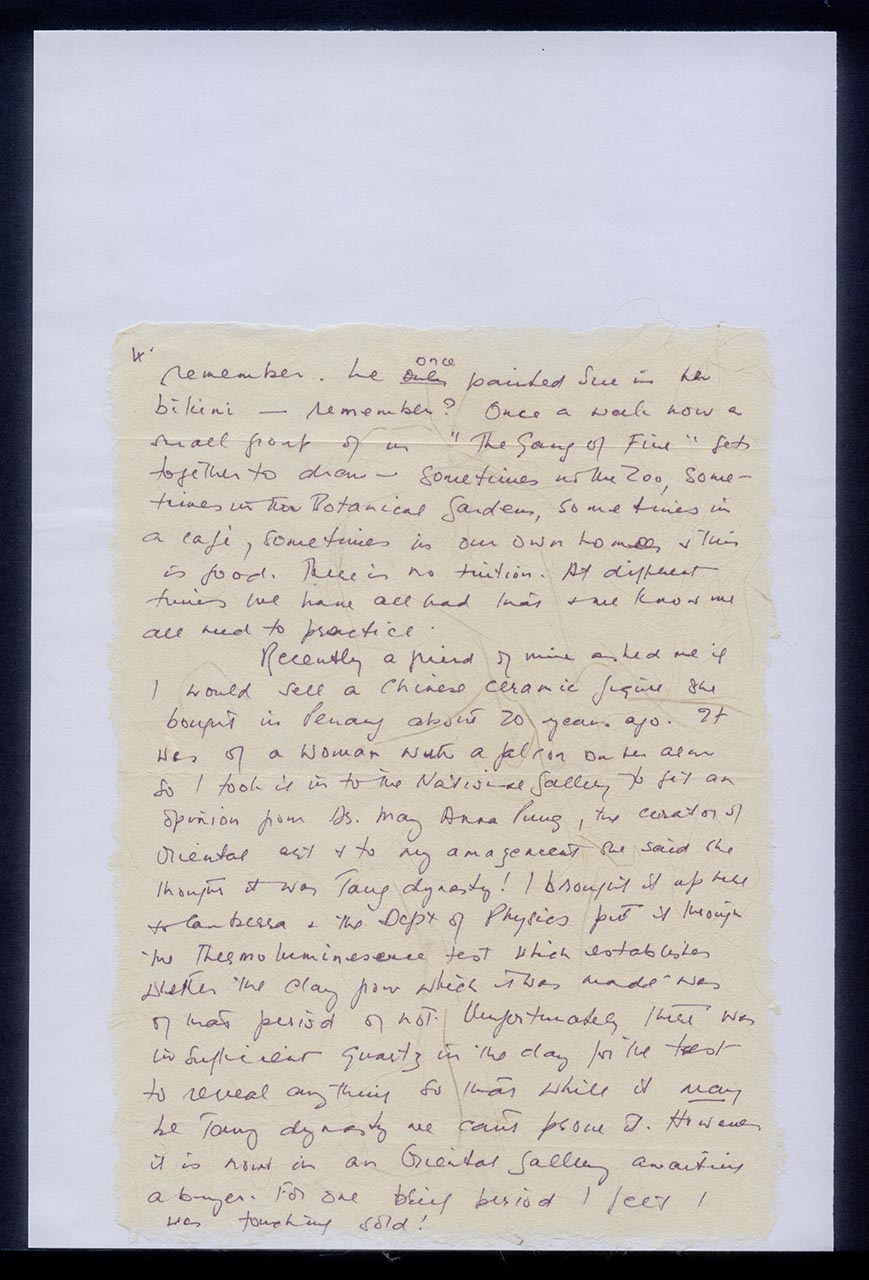 4.
remember. He once painted Sue in her
bikini — remember? Once a week now a
small group of us "The Gang of Five" gets
together to draw — sometimes in the Zoo, some-
times in the Botanical Gardens, sometimes in
a café, sometimes in our own homes & this
is good. There is no tuition. At different
times we have all had that & we know we
all need to practice.
Recently a friend of mine asked me if
I would sell a Chinese ceramic figure she
bought in Penang about 20 years ago. It
was of a woman with a falcon on her arm
so I took it in to the National Gallery to get an
opinion from Ms. May Anna Pung, the curator of
Oriental art & to my amazement she said she
thought it was Tang dynasty! I brought it up here
to Canberra & the Dept of Physics put it through
the Thermoluminescence test which establishes
whether the clay from which it was made was
of that period or not. Unfortunately there was
insufficient quartz in the clay for the test
to reveal anything so that while it may
be Tang dynasty we can't prove it. However
it is now in an Oriental Gallery awaiting
a buyer. For one brief period I felt I
was touching gold!